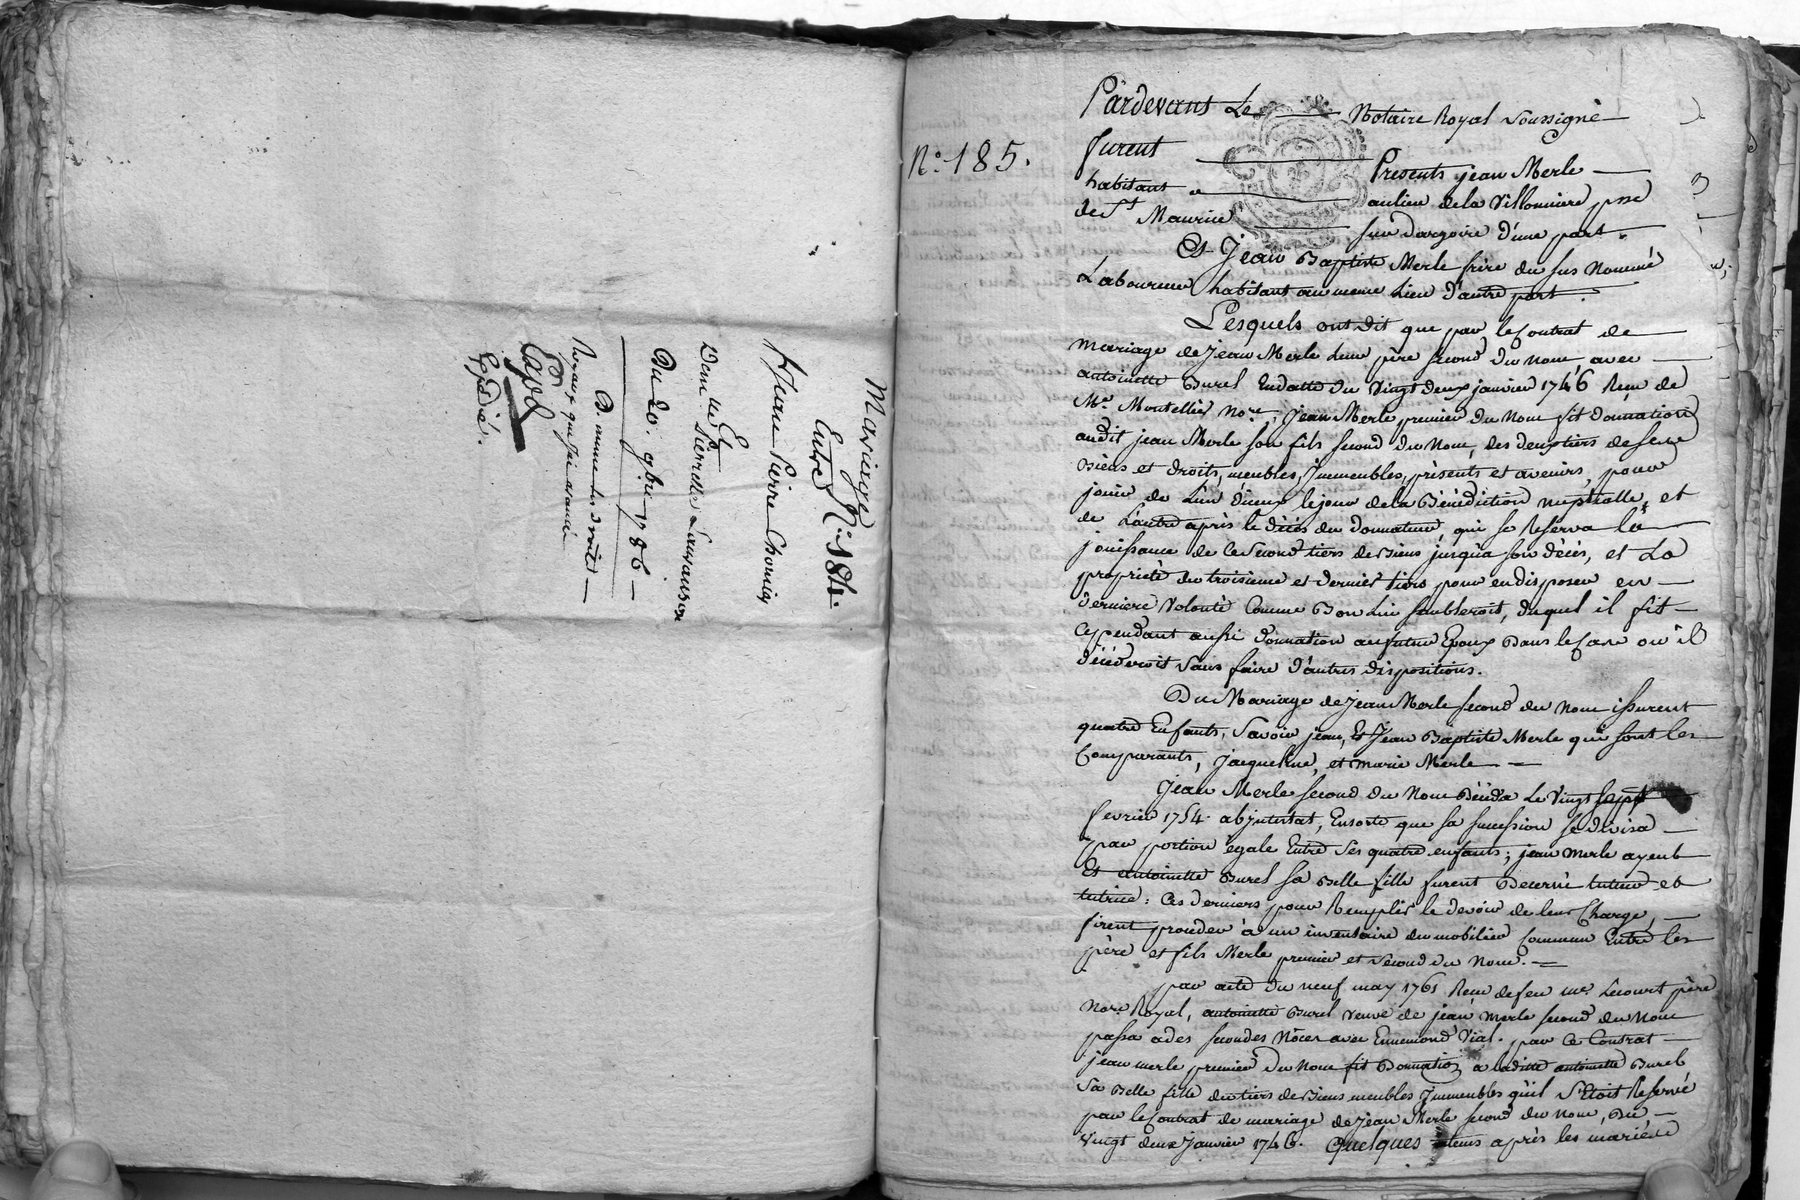 Mariage N.° 184.
Entre
Pierre Chomier
Et
Dem lle Pierrette
Du 20. 9bre 1786
Expédié.
N.° 185.
Pardevant Le Notaire Royal Soussigné
furent Presents jean Merle
habitant a aulieu dela Villonniere psse
de St Maurice sur dargoire d'une part.
Et Jean Baptiste Merle frère du sus Nommé
Laboureur habitant au meme Lieu d'autre part.
Lesquels ont dit que par le Contrat de
mariage de Jean Merle Leur père second du nom avec
antoinette Burel Endatte du Vingt deux janvier 1746 Recu de
Me. Montellier nore, jean Merle premier du Nom fit donnation
audit jean Merle son fils second du Nom, des deux tiers de ses
Biens et droits, meubles, Jmmeubles, présents et avenirs, pour
jouir de L'un d'iceux lejour dela Bénédiction nuptialle, et
de L'autre après le décés du Donnateur, qui se Reserva la
jouissance de ce second tiers de Biens jusqu'a son décés, et La
propriété du troisieme et dernier tiers pour en disposer en
derniere Volonté Comme Bon Lui sembleroit, duquel il fit
Cependant aussi Donnation au futur Epoux Dans le Cas ou il
décéderoit sans faire d'autres dispositions.
Du Mariage de Jean Merle second du Nom issurent
quatre Enfants, Savoir jean, Et Jean Baptiste Merle qui sont les
Comparants, Jacqueline, et marie Merle
Jean Merle second du Nom Décéda Le Vingt Sept
fevrier 1754. abjntestat, Ensorte que sa succession se divisa
par portion égale Entre Ses quatre enfants; jean merle ayeul
Et antoinette Burel sa Belle fille furent Decerné tuteur et
tutrice: Ces derniers pour Remplir le devoir de leur Charge,
firent proceder à un inventaire du mobilier Commun Entre les
père et fils Merle premier et second du Nom.
par acte du neuf may 1761 Recu de feu me. Lecourt père
Nore. Royal, antoinette Burel veuve de jean merle second du Nom
passa a des secondes Nôces avec Ennemond Vial. par Ce Contrat
jean merle premier du Nom fit Donnation a ladite antoinette Burel
Sa Belle fille du tiers de Biens meubles Jmmeubles qu'il S'Etoit Reservé
par le Contrat de mariage de Jean Merle second du nom, Du
Vingt deux Janvier 1746. Quelques tems après les mariés